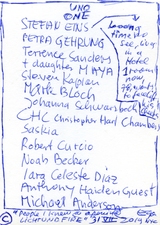 UNO
ONE
STEFAN EINS
PETRA GEHRUNG
Terrence Sanders
+ daughter MAYA
Steven Kaplan
Mark BLOCH
Johanna Schwarzbeck
CHC Christopher Hart Chambers
Saskia
Robert Curcio
Noah Becker
Iara Celeste Diaz
Anthony Haden Guest
Michael Anderson
Looong
time no
see,
Hotel
1
room
"People I knew
LICHTUNDFIRE" 31 VII 2019